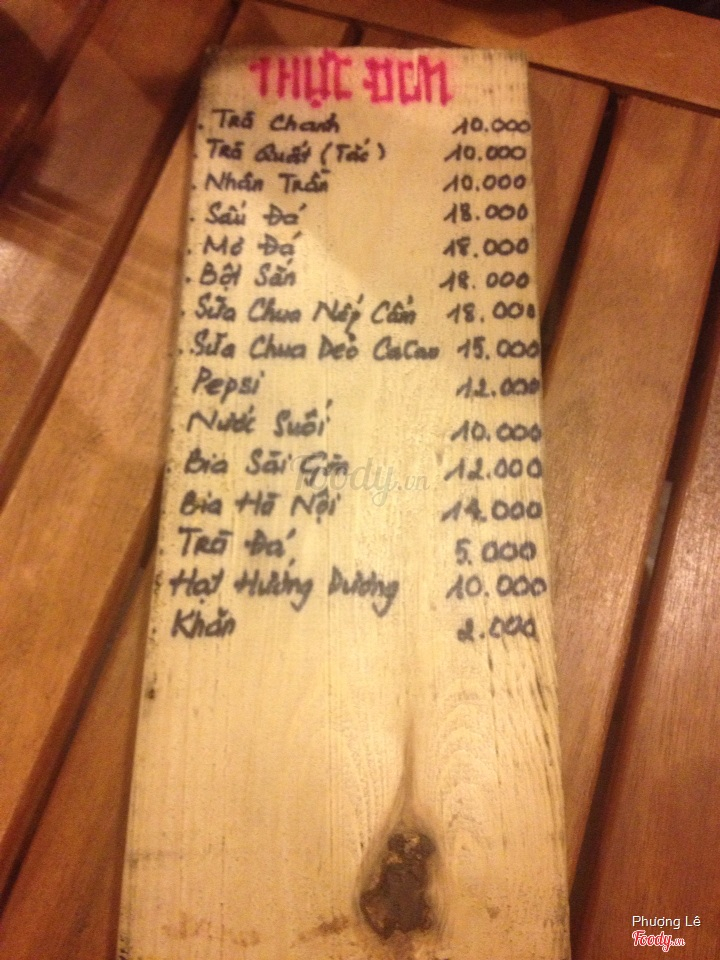 THỰC ĐƠN
Trà Chanh 10.000
Trà Quất (Tắc) 10.000
Nhân Trần 10.000
Sấu Đá 18.000
Mơ Đá 18.000
Bột Sắn 18.000
Sữa Chua Nếp Cẩm 18.000
Sữa Chua Dẻo CaCao 15.000
Pepsi 12.000
Nước Suối 10.000
Bia Sài Gòn 12.000
Bia Hà Nội 14.000
Trà Đá 5.000
Hạt Hướng Dương 10.000
Khăn 2.000
Foody.vn
Phượng Lê
Foody.vn